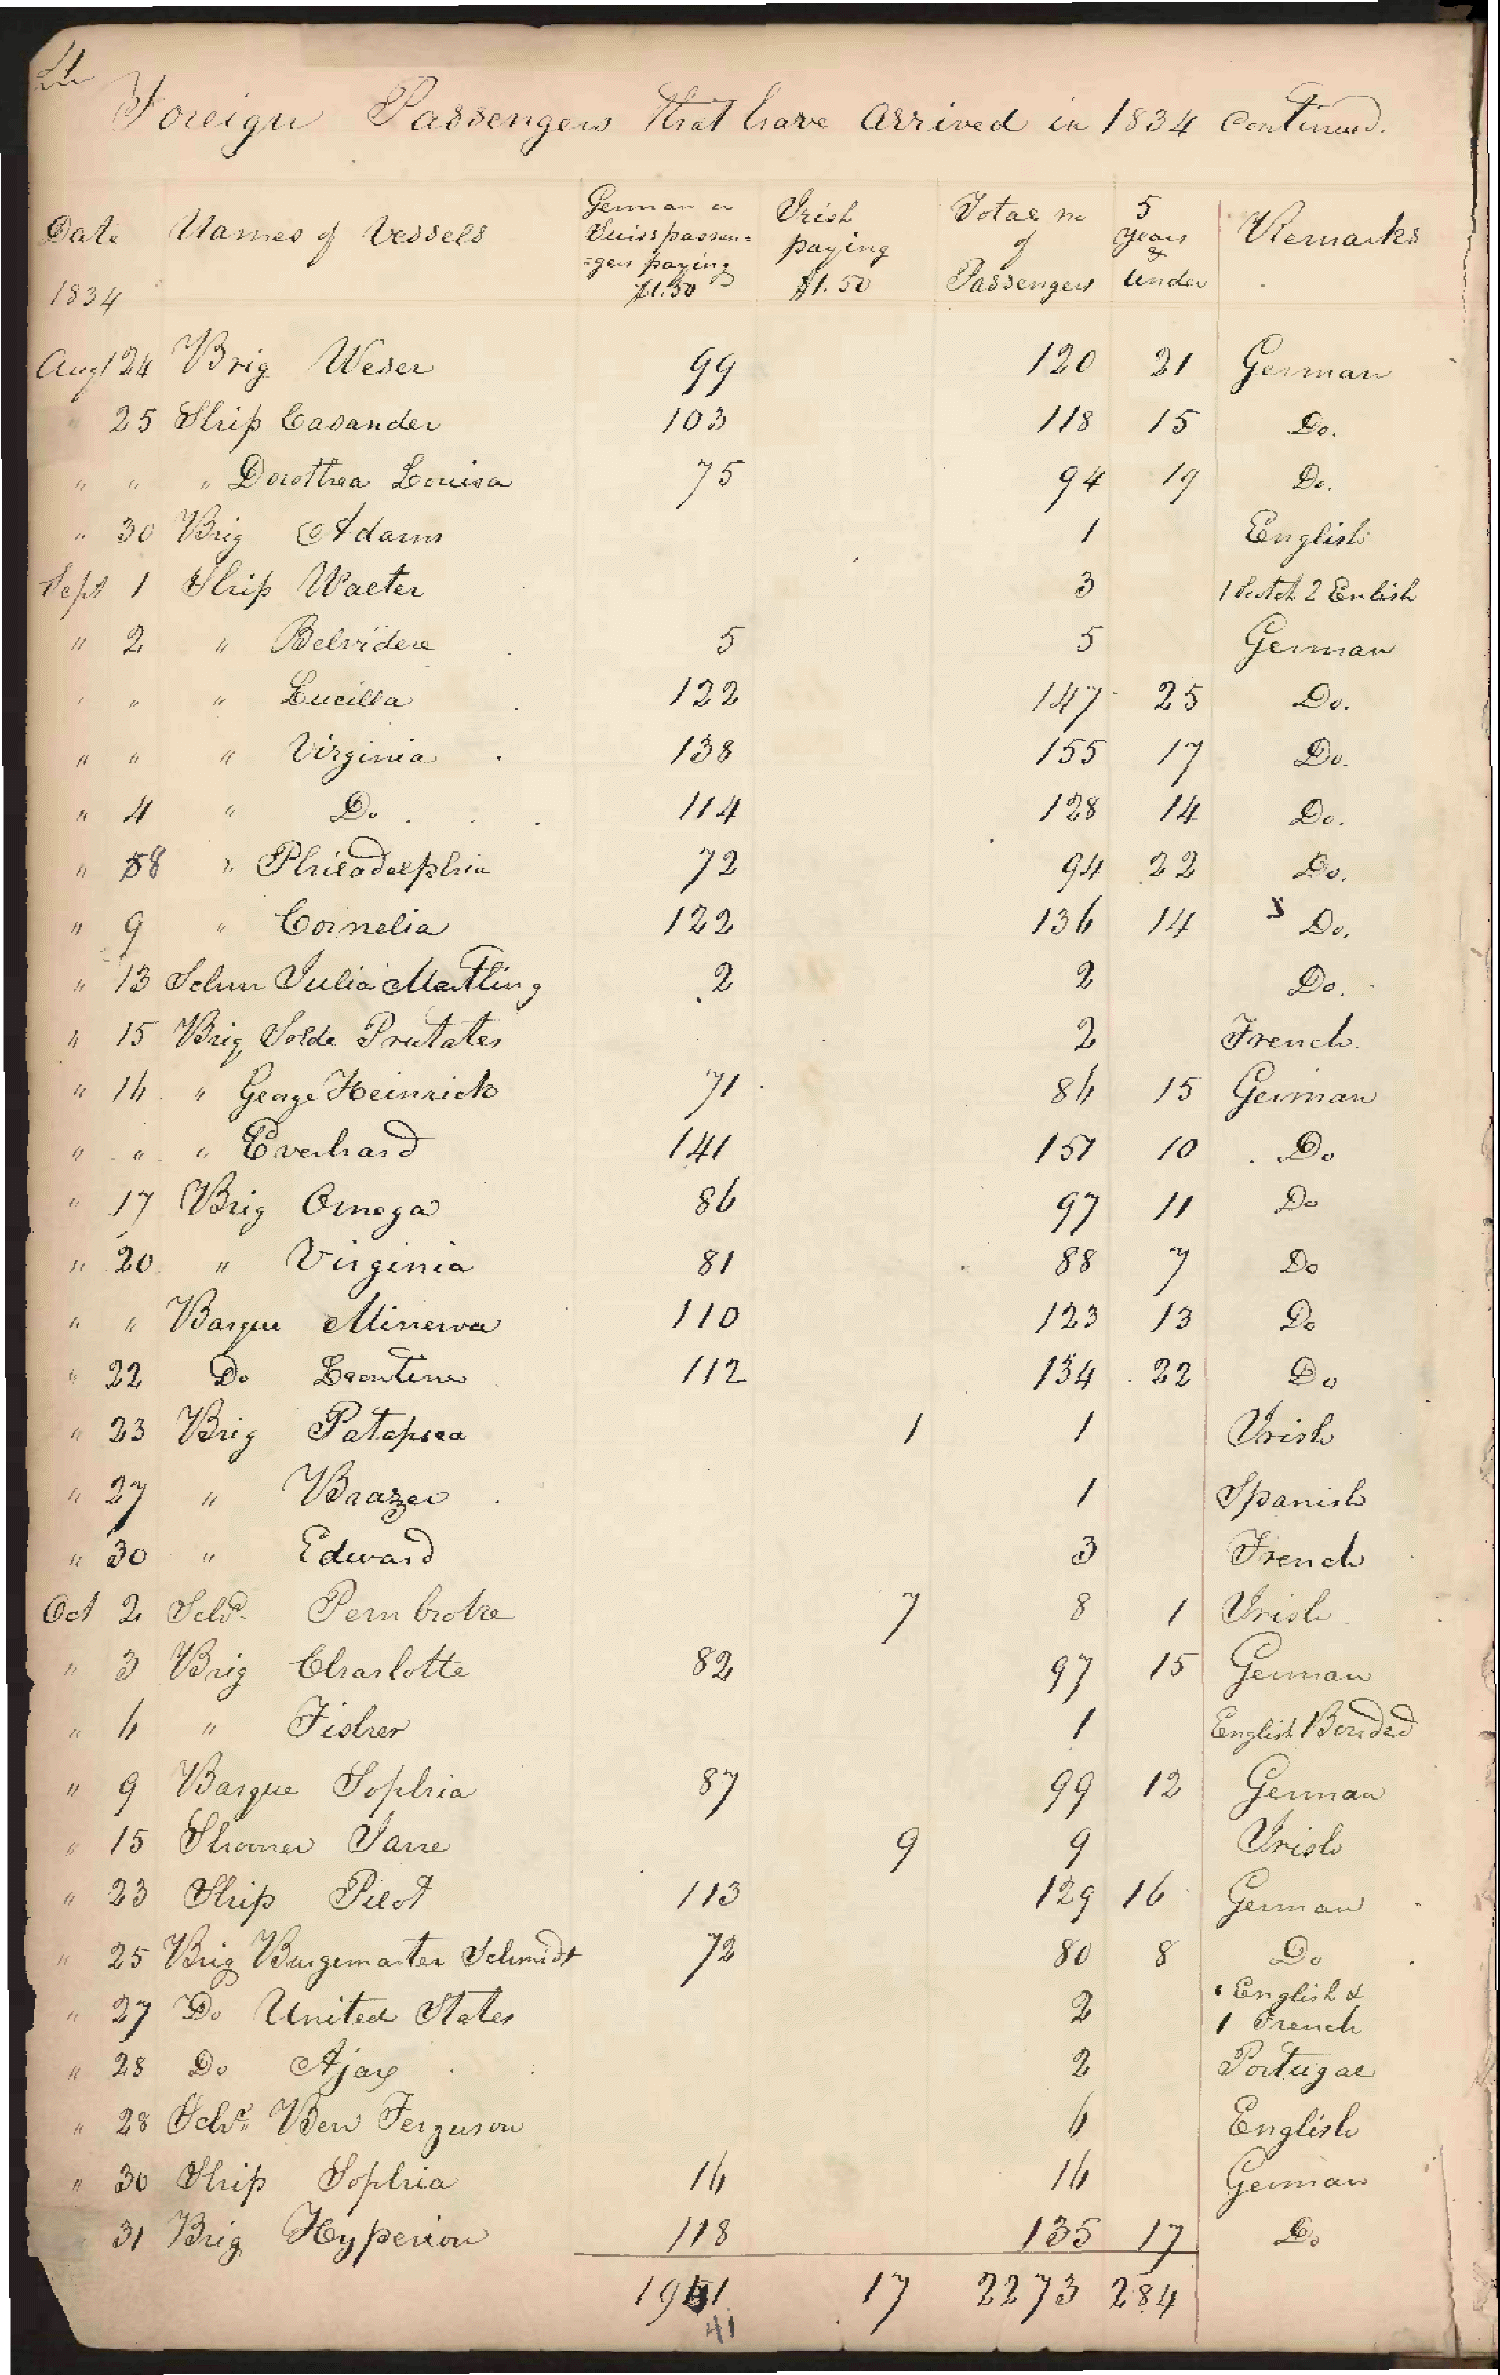 Foreign Passengers that have arrived in 1834 continued.
Date Names of Vessels German or Swiss passen=gers paying $1.50 Irish paying $1.50 Total no of Passengers 5 years & under Remarks
1834
Augt 24 Brig Weser 99 120 21 German
" 25 Ship Casander 103 118 15 Do.
" " " Dorothea Louisa 75 94 19 Do.
" 30 Brig Adams 1 English
Sept 1 Ship Walter 3 1 Scotch 2 Enlish
" 2 " Belvidere 5 5 German
" " " Lucilla 122 147 25 Do.
" " " Virginia 138 155 17 Do.
" 4 " Do 114 128 14 Do.
" 8 " Philadelphia 72 94 22 Do.
" 9 " Cornelia 122 136 14 Do.
" 13 Schnr Julia Martling 2 2 Do.
" 15 Brig Solde Prutates 2 French
" 16 " George Heinrich 71 86 15 German
" " " Everhard 141 151 10 Do
" 17 Brig Omega 86 97 11 Do
" 20 " Virginia 81 88 7 Do
" " Barque Minerva 110 123 13 Do
" 22 Do Leontine 112 134 22 Do
" 23 Brig Patapsca 1 1 Irish
" 27 " Brazer 1 Spanish
" 30 " Edward 3 French
Oct 2 Schr. Pembroke 7 8 1 Irish
" 3 Brig Charlotte 82 97 15 German
" 6 " Fisher 1 English Bonded
" 9 Barque Sophia 87 99 12 German
" 15 Shooner Jane 9 9 Irish
" 23 Ship Pilot 113 129 16 German
" 25 Brig Burgemaster Schmidt 72 80 8 Do
" 27 Do United States 2 1 English & 1 French
" 28 Do Ajax 2 Portugal
" 28 Schr. Ben Ferguson 6 English
" 30 Ship Sophia 16 16 German
31 Brig Hyperion 118 135 17 Do
1941 17 2273 284
41